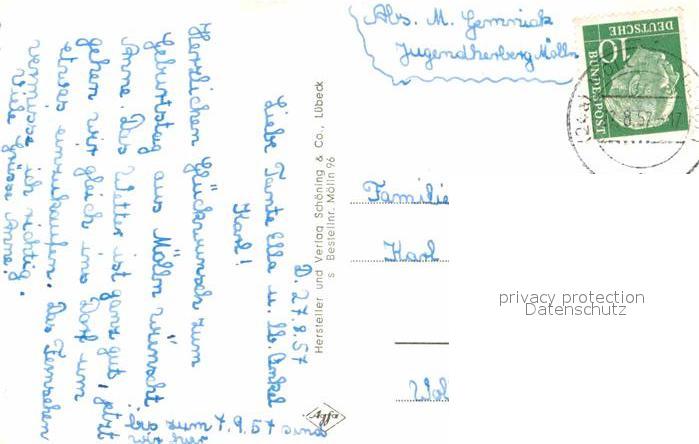 Abs. M. Gemniak
Jugendherberg Mölln
DEUTSCHE
BUNDESPOST
10
8.57-17
D. 27.8.57
Liebe Tante Ella u. lb. Onkel
Karl!
Herzlichen Glückwunsch zum
Geburtstag aus Mölln wünscht
Anne. Das Wetter ist ganz gut, jetzt
gehen wir gleich ins Dorf um
etwas einzukaufen. Das Fernsehen
vermisse ich richtig.
Viele Grüsse Anne!
bis zum 7.9.57 sind
wir hier
Hersteller und Verlag Schöning & Co., Lübeck
s Bestellnr. Mölln 96
Agfa
Familie
Karl
privacy protection
Datenschutz